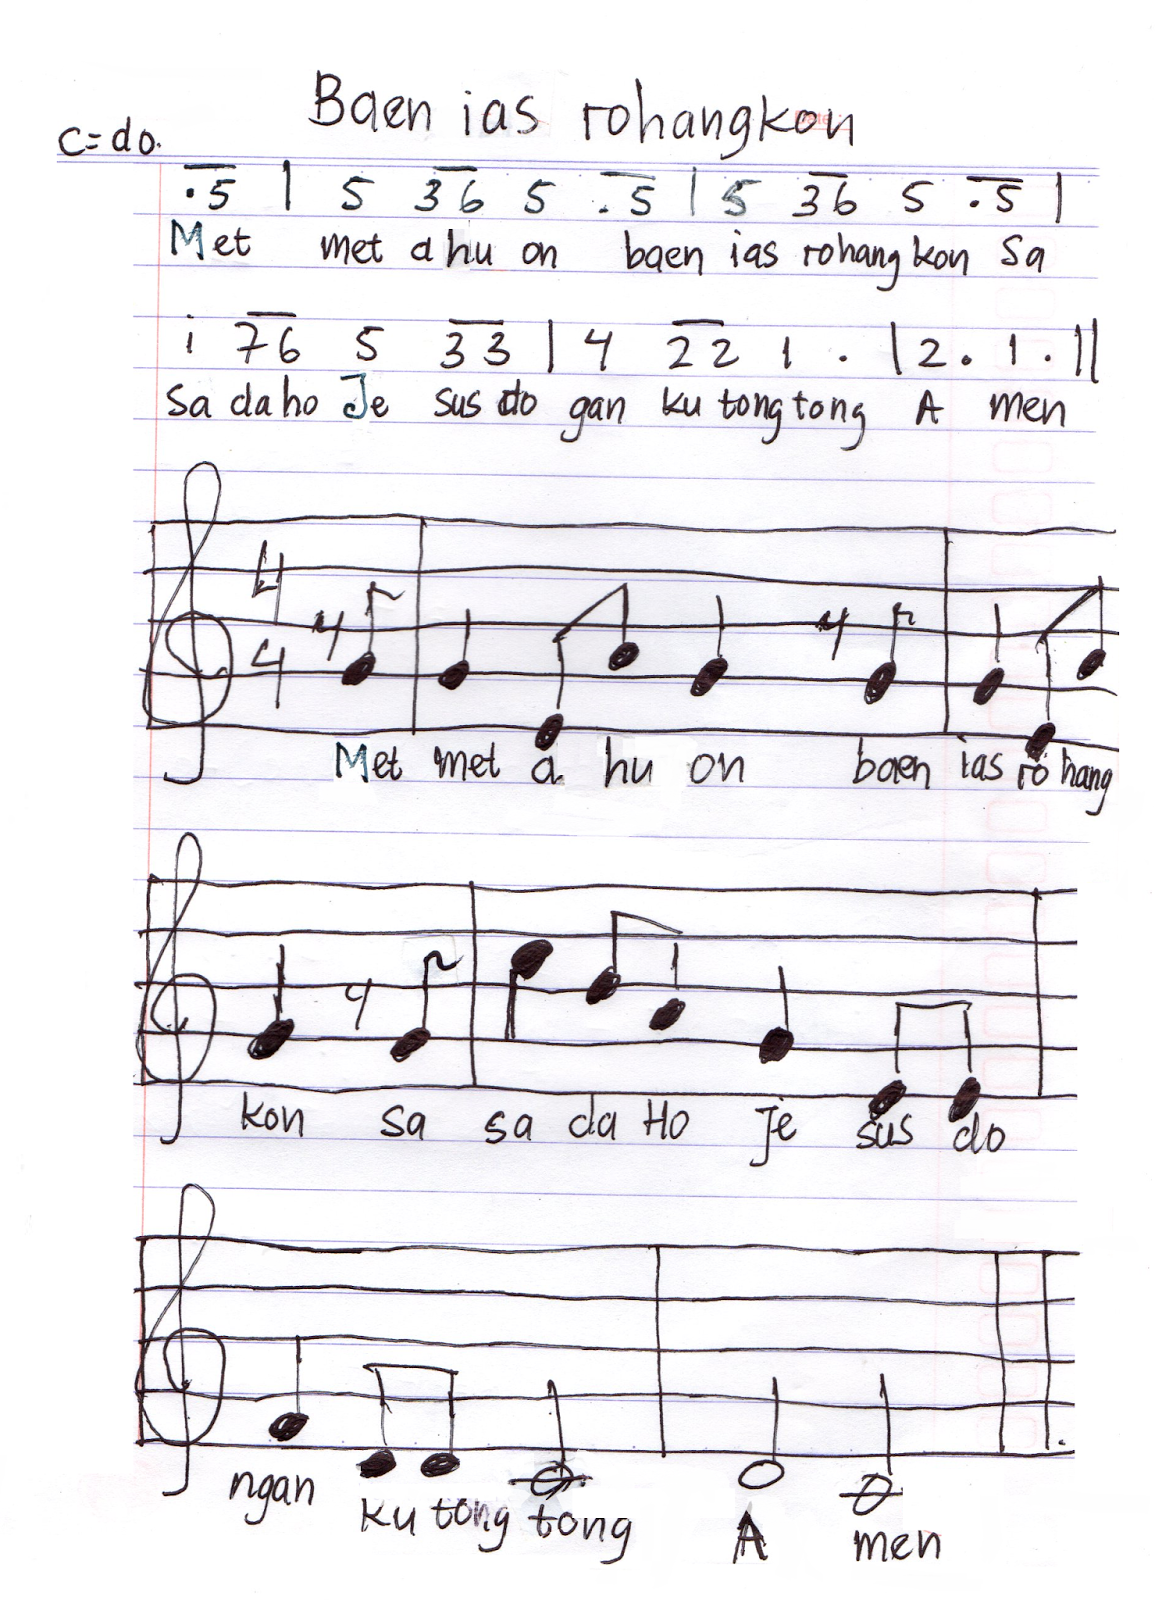 Baen ias rohangkon
c=do.
.5 | 5 36 5 .5 | 5 36 5 .5 |
Met met a hu on baen ias rohang kon Sa
i 76 5 33 | 4 22 1 . | 2 . 1 . ||
Sa da ho Je sus do gan ku tong tong A men
4
4
Met met a hu on baen ias ro hang
kon sa sa da Ho Je sus do
ngan ku tong tong A men